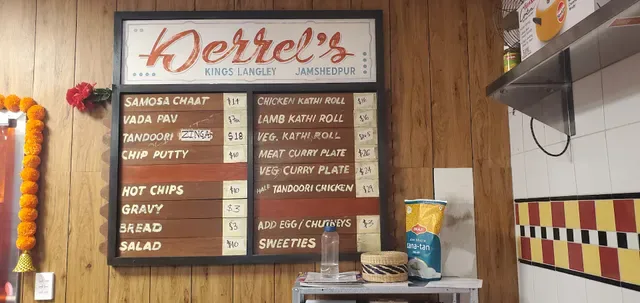 Derrel's
KINGS LANGLEY JAMSHEDPUR
SAMOSA CHAAT $14
VADA PAV
TANDOORI ZINGA $18
CHIP PUTTY $10
HOT CHIPS $10
GRAVY $3
BREAD $3
SALAD $10
CHICKEN KATHI ROLL
LAMB KATHI ROLL
VEG. KATHI ROLL
MEAT CURRY PLATE $26
VEG CURRY PLATE $24
HALF TANDOORI CHICKEN $24
ADD EGG / CHUTNEYS $3
SWEETIES
tana-tan